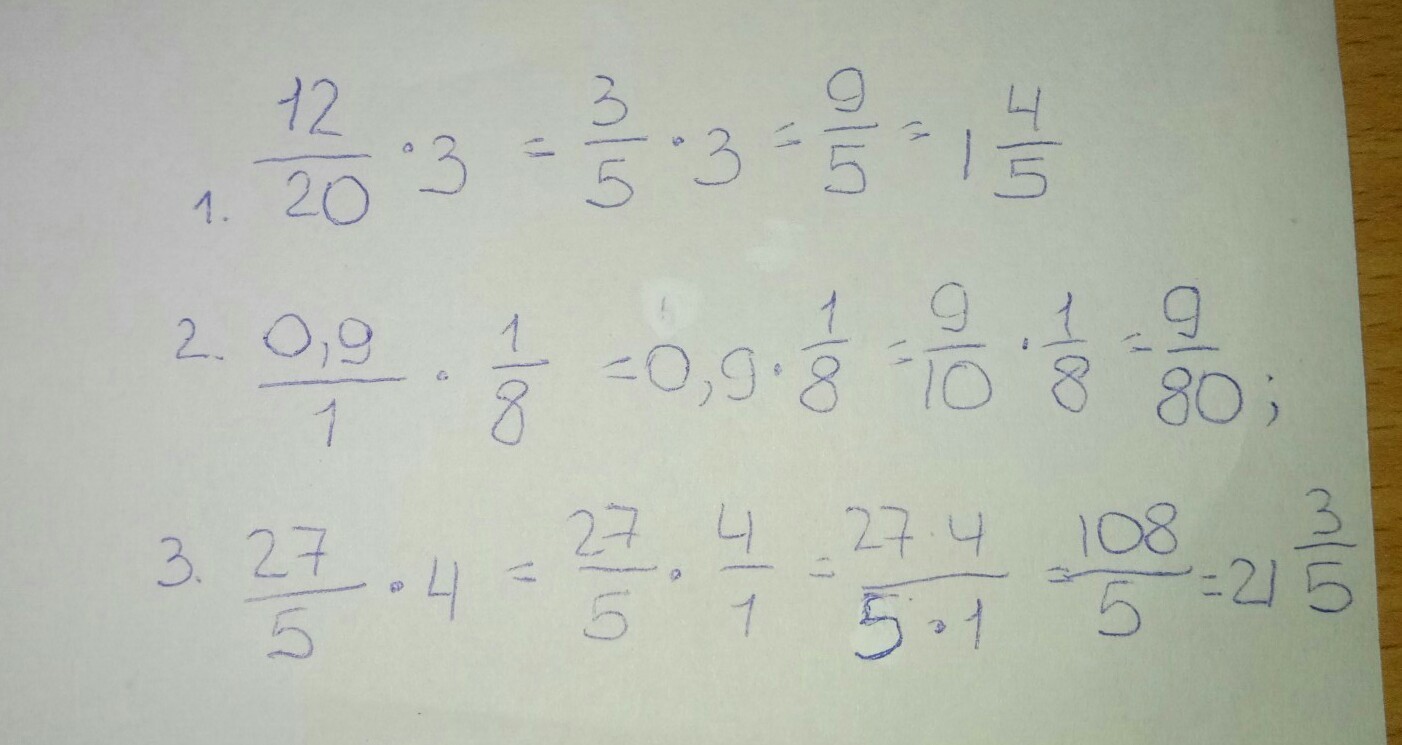 1. 12/20 · 3 = 3/5 · 3 = 9/5 = 1 4/5
2. 0,9/1 · 1/8 = 0,9 · 1/8 = 9/10 · 1/8 = 9/80;
3. 27/5 · 4 = 27/5 · 4/1 = 27·4/5·1 = 108/5 = 21 3/5